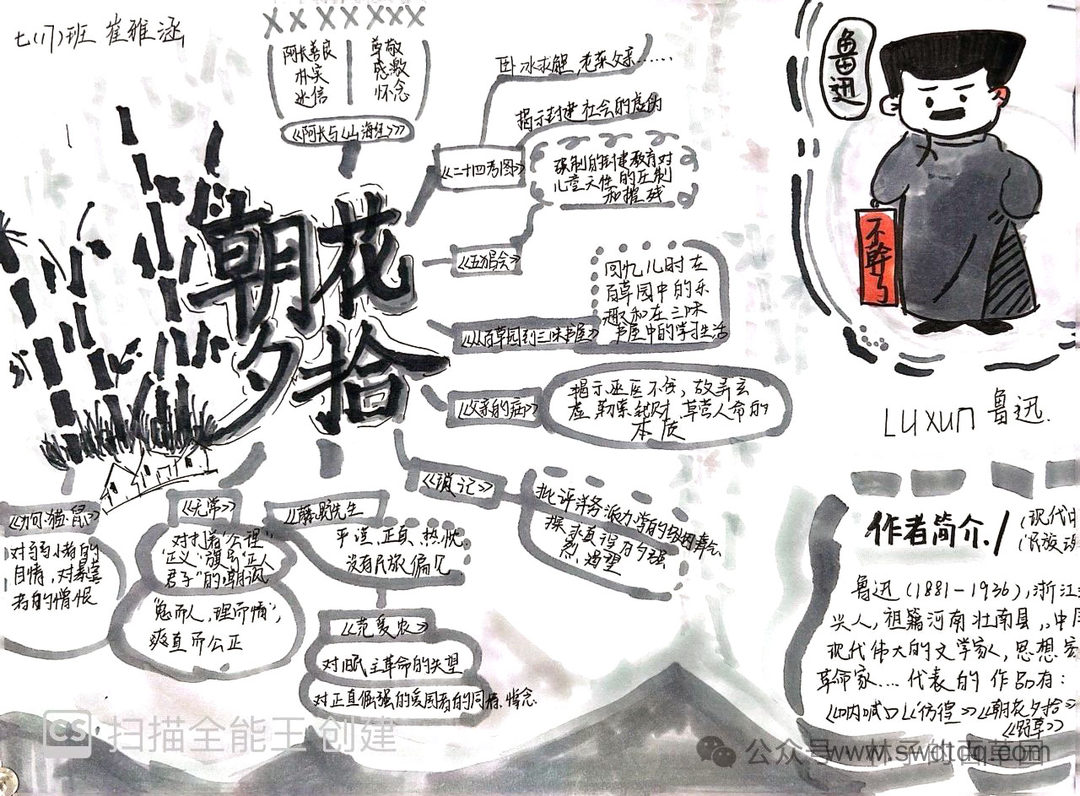 七(17)班 崔雅涵
阿长善良
朴实
迷信
尊敬
感激
怀念
《阿长与《山海经》》
卧冰求鲤,老莱娱亲……
揭示封建社会的虚伪
《二十四孝图》
强制的封建教育对
儿童天性的压制
和摧残
《五猖会》
朝花
夕拾
回忆儿时在
百草园中的乐
趣和在三味
书屋中的学习生活
《从百草园到三味书屋》
《父亲的病》
揭示巫医不分,故弄玄
虚,勒索钱财,草菅人命的
本质
《琐记》
批评洋务派办学的
《狗·猫·鼠》
对弱小者的
同情,对暴虐
者的憎恨
《无常》
对打着"公理"
"正义"旗号"正人
君子"的嘲讽
爽直而公正
《藤野先生
平迂、正直、热忱
没有民族偏见
《范爱农》
对旧民主革命的失望
对正直倔强的爱国者的同情、悼念
鲁迅
不幹了
Luxun 鲁迅.
作者简介/
(现代
(民族
鲁迅(1881-1936),浙江
兴人,祖籍河南
现代伟大的文学家,思想
革命家....代表的作品有:
《呐喊》《彷徨》《朝花夕拾》
《野草》
CS 扫描全能王 创建
公众号
www.swdtdq.com